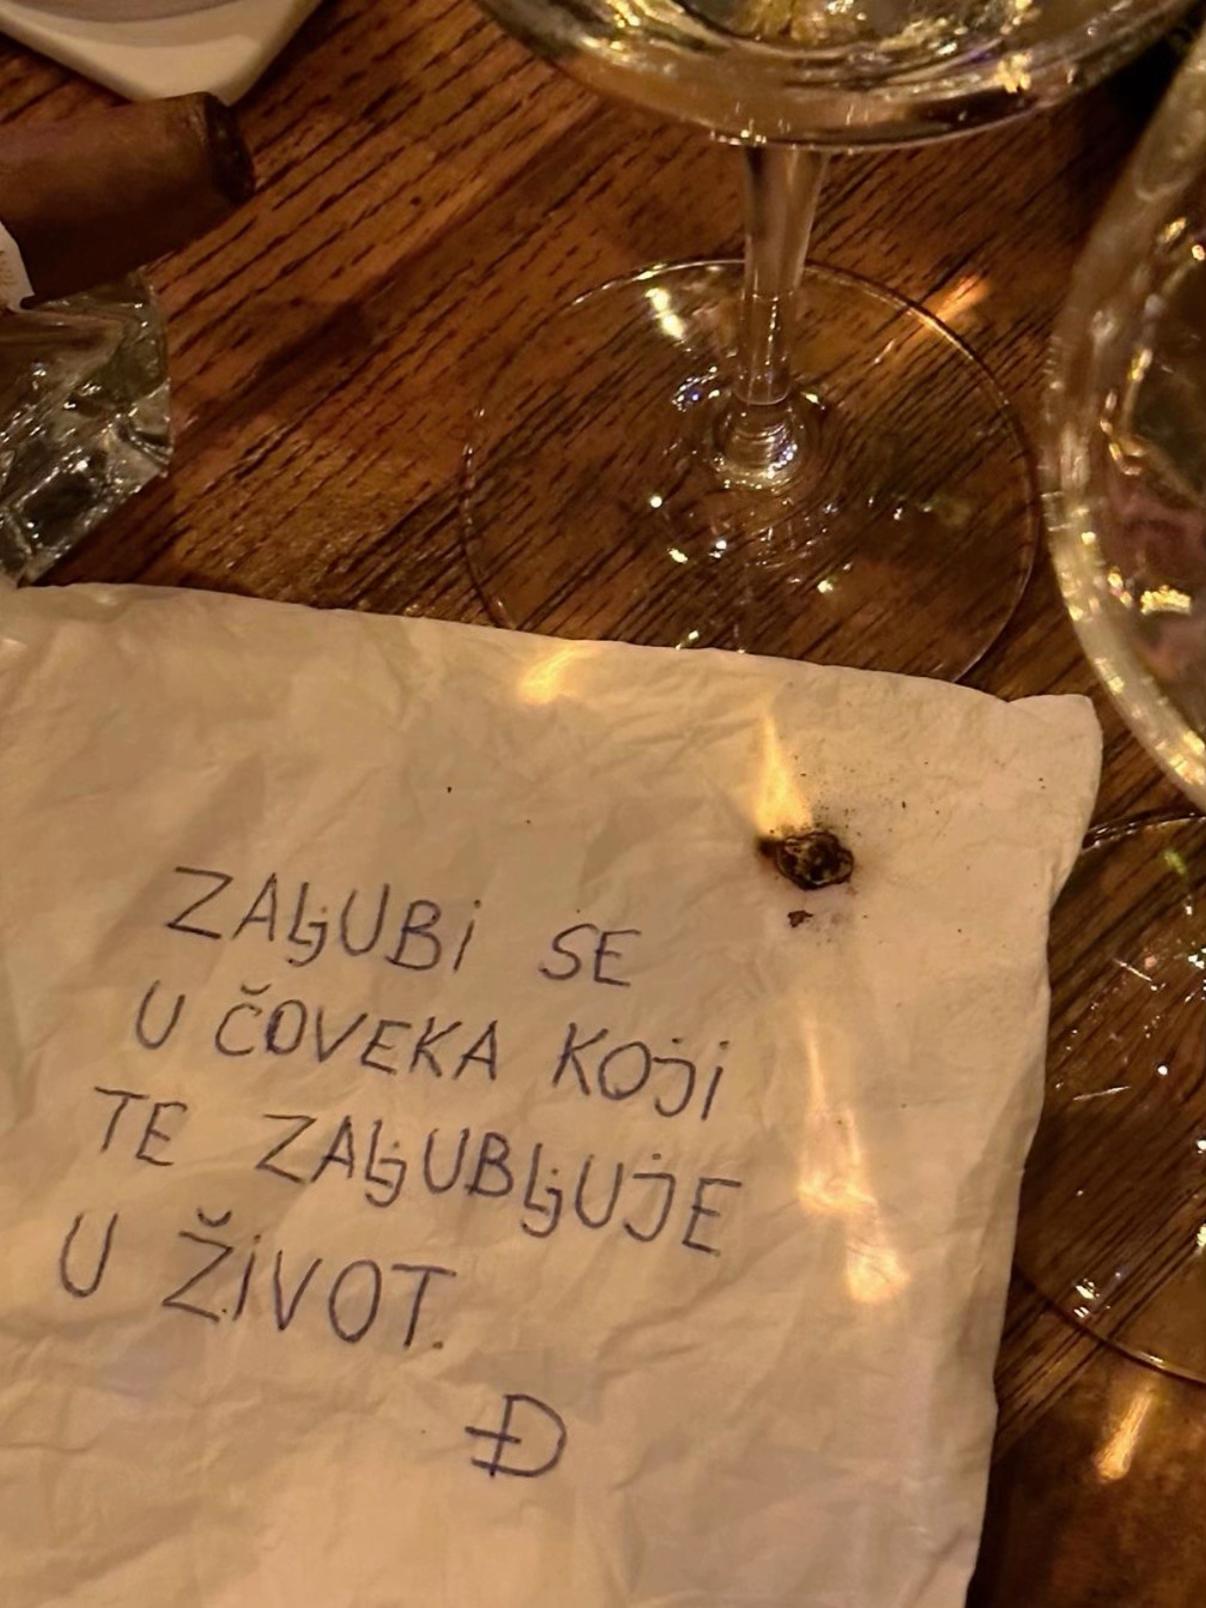 ZALJUBI SE
U ČOVEKA KOJI
TE ZALJUBLJUJE
U ŽIVOT.
Đ